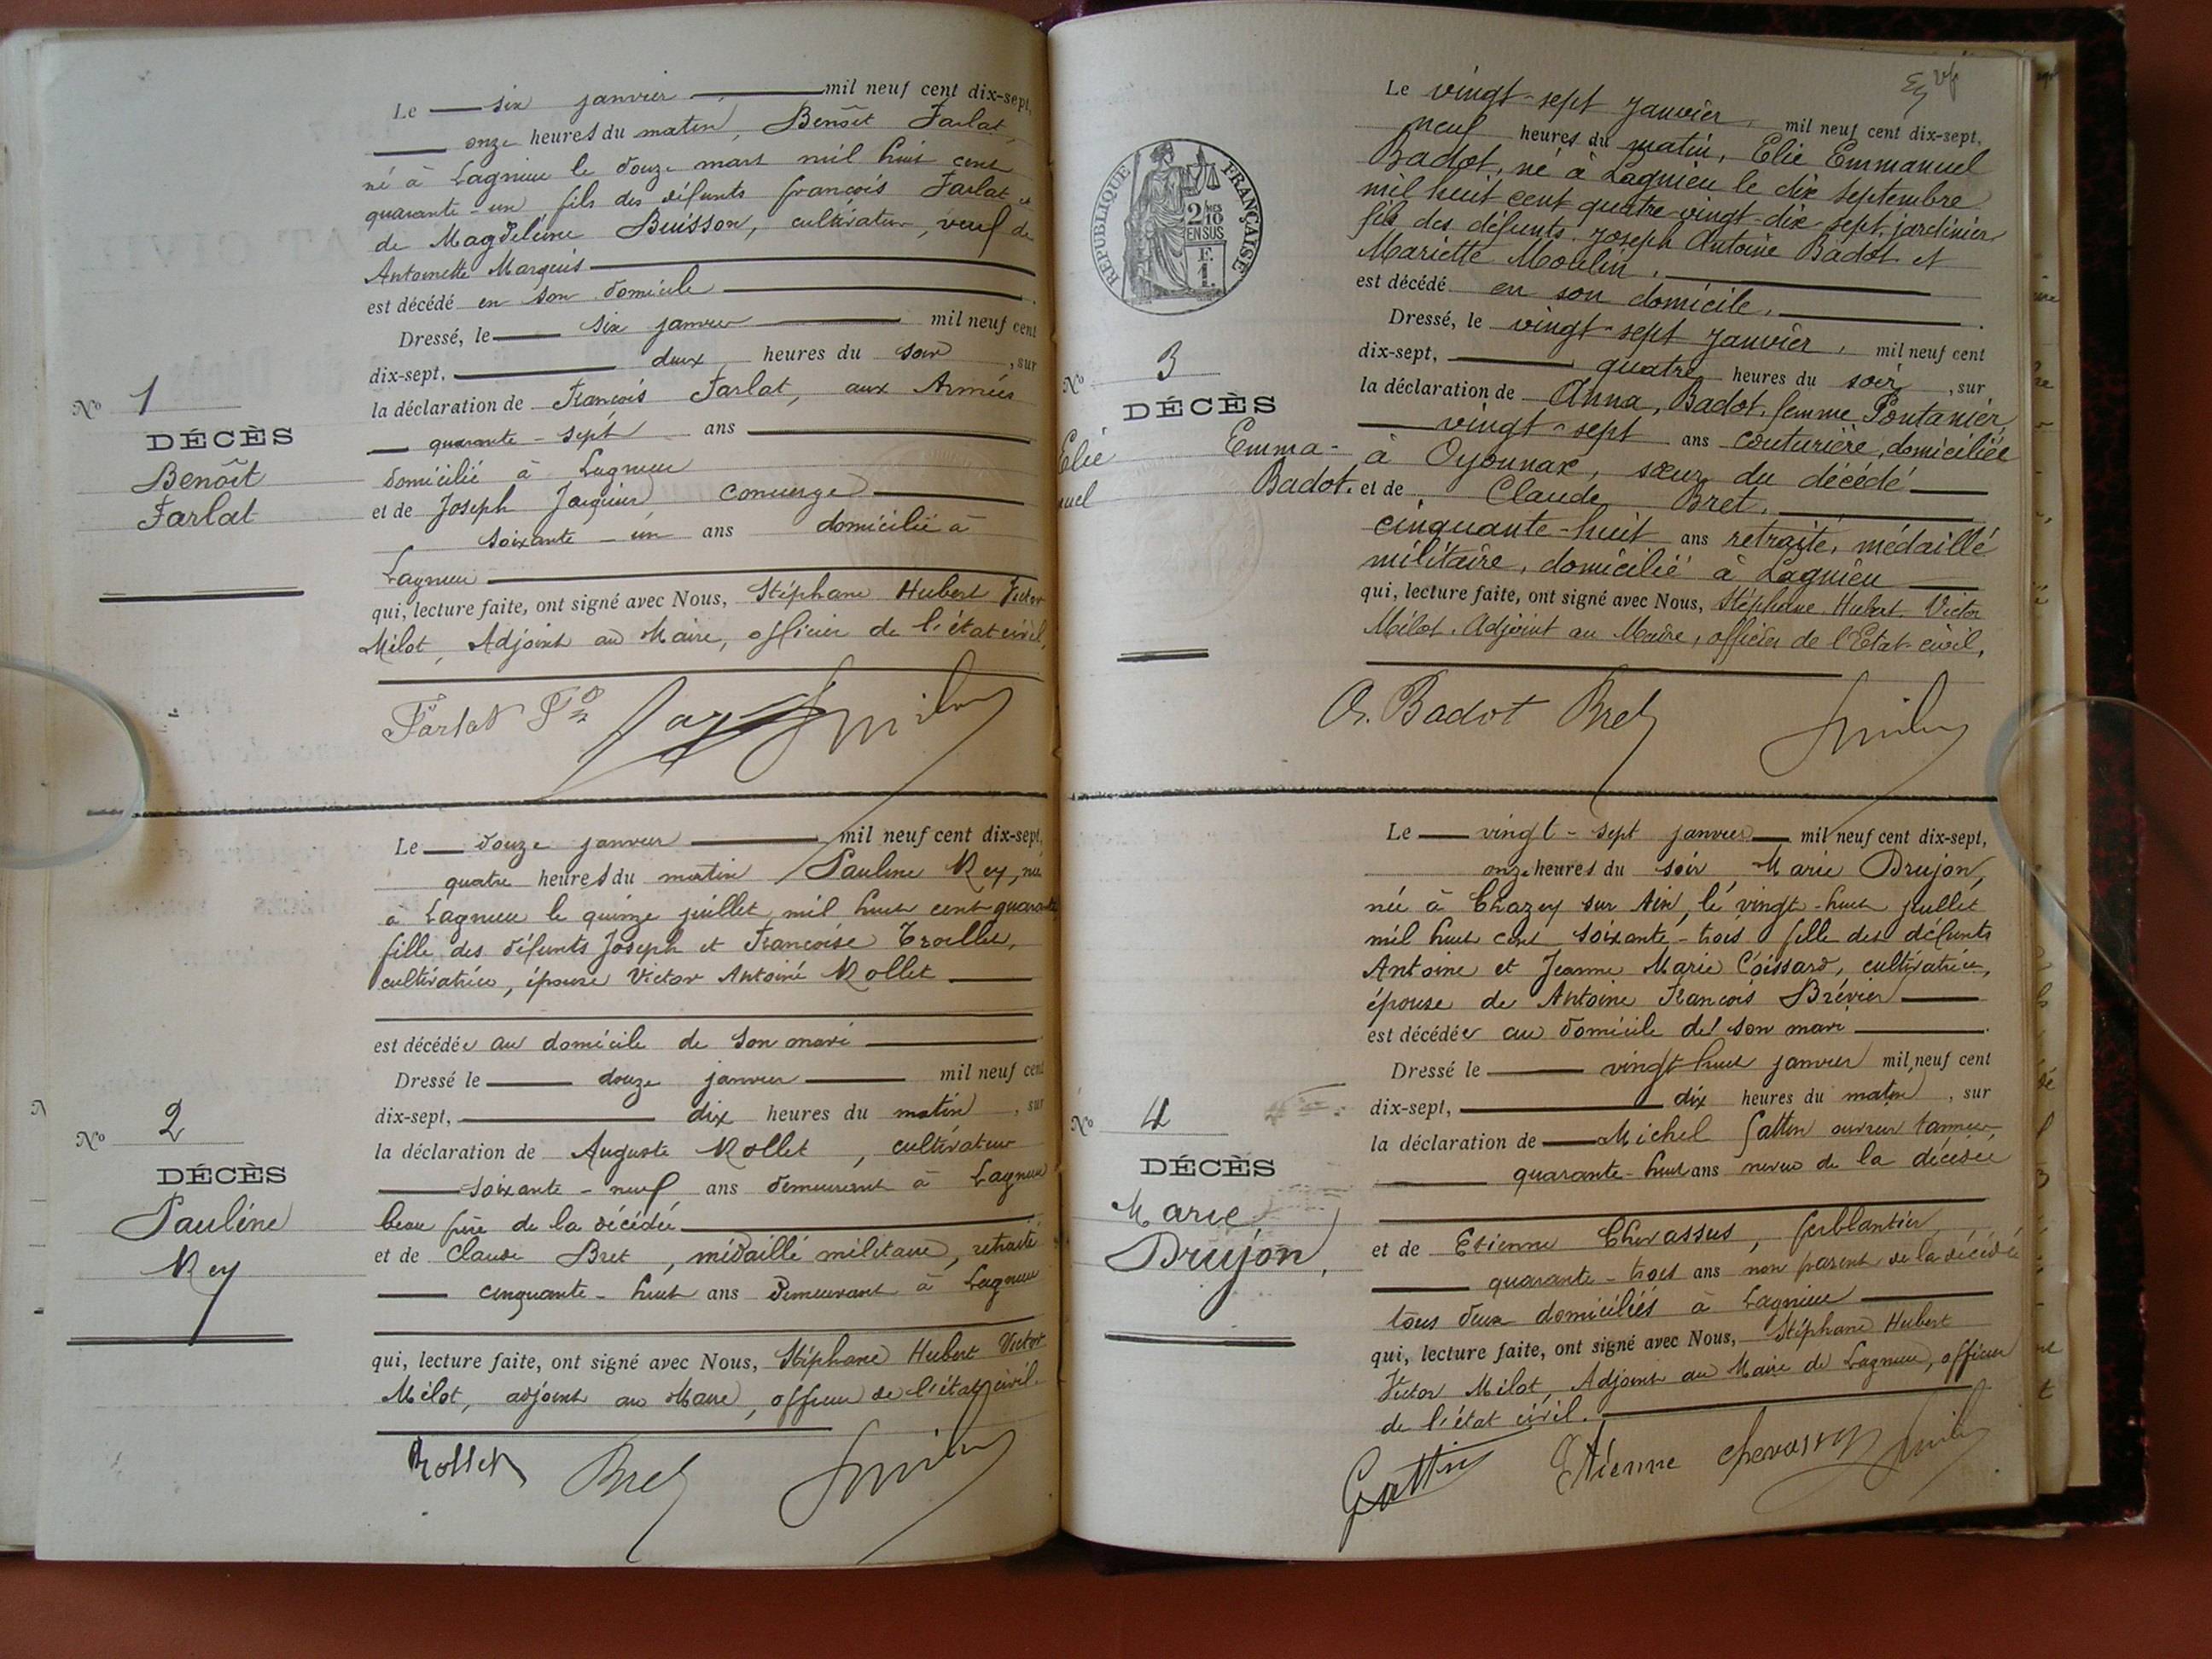 Le six janvier mil neuf cent dix-sept,
onze heures du matin, Benoît Farlat,
né à Lagnieu le douze mars mil huit cent
quarante-un fils des défunts françois Farlat et
de Magdeleine Buisson, cultivateur, veuf de
Antoinette Marquis
est décédé en son domicile
Dressé, le six janvier mil neuf cent
dix-sept, deux heures du soir, sur
la déclaration de François Farlat, aux Armées
quarante-sept ans
domicilié à Lagnieu
et de Joseph Jacquier concierge
soixante-un ans domicilié à
Lagnieu
qui, lecture faite, ont signé avec Nous, Stéphane Hubert Victor
Milot, Adjoint au Maire, officier de l'état civil,
Nº 1
DÉCÈS
Benoît
Farlat
Farlat
Le douze janvier mil neuf cent dix-sept,
quatre heures du matin Pauline Rey, née
à Lagnieu le quinze juillet mil huit cent quarante
fille des défunts Joseph et Françoise Trollet,
cultivatrice, épouse Victor Antoine Rollet
est décédée au domicile de son mari
Dressé le douze janvier mil neuf cent
dix-sept, dix heures du matin, sur
la déclaration de Auguste Rollet, cultivateur
soixante-neuf ans demeurant à Lagnieu
beau frère de la décédée
et de Claude Bret, médaillé militaire, retraité
cinquante-huit ans demeurant à Lagnieu
qui, lecture faite, ont signé avec Nous, Stéphane Hubert Victor
Milot, adjoint au Maire, officier de l'état civil.
Nº 2
DÉCÈS
Pauline
Rey
Rollet Bret Smilot
RÉPUBLIQUE FRANÇAISE
2/10 EN SUS
F. 1.
Le vingt-sept janvier, mil neuf cent dix-sept,
neuf heures du matin, Elie Emmanuel
Badot, né à Lagnieu le dix septembre
mil huit cent quatre-vingt-dix-sept, jardinier,
fils des défunts Joseph Antoine Badot et
Mariette Moulin.
est décédé en son domicile.
Dressé, le vingt-sept janvier, mil neuf cent
dix-sept, quatre heures du soir, sur
la déclaration de Anna, Badot, femme Pontanier,
vingt-sept ans couturière, domiciliée
à Oyonnax, sœur du décédé
et de Claude Bret,
cinquante-huit ans retraité, médaillé
militaire, domicilié à Lagnieu
qui, lecture faite, ont signé avec Nous, Stéphane Hubert Victor
Milot, Adjoint au Maire, officier de l'Etat-civil,
Nº 3
DÉCÈS
Elie Emma-
nuel Badot.
A. Badot Bret Smilot
Le vingt-sept janvier mil neuf cent dix-sept,
onze heures du soir Marie Drujon,
née à Chazey sur Ain, le vingt-huit juillet
mil huit cent soixante-trois fille des défunts
Antoine et Jeanne Marie Coissard, cultivatrice,
épouse de Antoine François Brévier
est décédée au domicile de son mari
Dressé le vingt huit janvier mil neuf cent
dix-sept, dix heures du matin, sur
la déclaration de Michel Gattin ouvrier tanneur,
quarante-huit ans neveu de la décédée
et de Etienne Chevassus, ferblantier
quarante-trois ans non parent de la décédée
tous deux domiciliés à Lagnieu
qui, lecture faite, ont signé avec Nous, Stéphane Hubert
Victor Milot, Adjoint au Maire de Lagnieu, officier
de l'état civil.
Nº 4
DÉCÈS
Marie
Drujon,
Gattin Etienne Chevassus Smilot